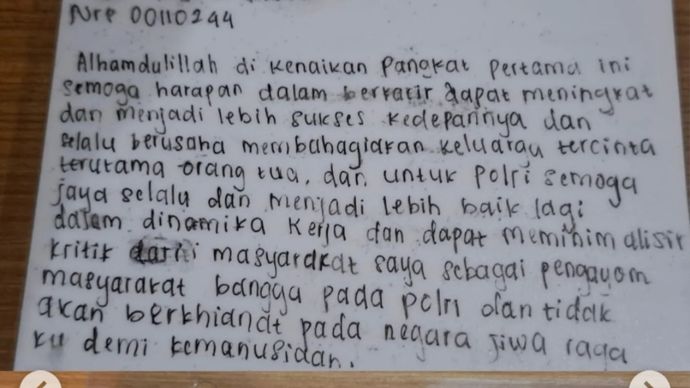 Nrp 00110244
Alhamdulillah di kenaikan pangkat pertama ini
semoga harapan dalam berkarir dapat meningkat
dan menjadi lebih sukses kedepannya dan
selalu berusaha membahagiakan keluarga tercinta
terutama orang tua, dan untuk polri semoga
jaya selalu dan menjadi lebih baik lagi
dalam dinamika kerja dan dapat meminimalisir
kritik dari masyarakat saya sebagai pengayom
masyarakat bangga pada polri dan tidak
akan berkhianat pada negara jiwa raga
ku demi kemanusiaan.